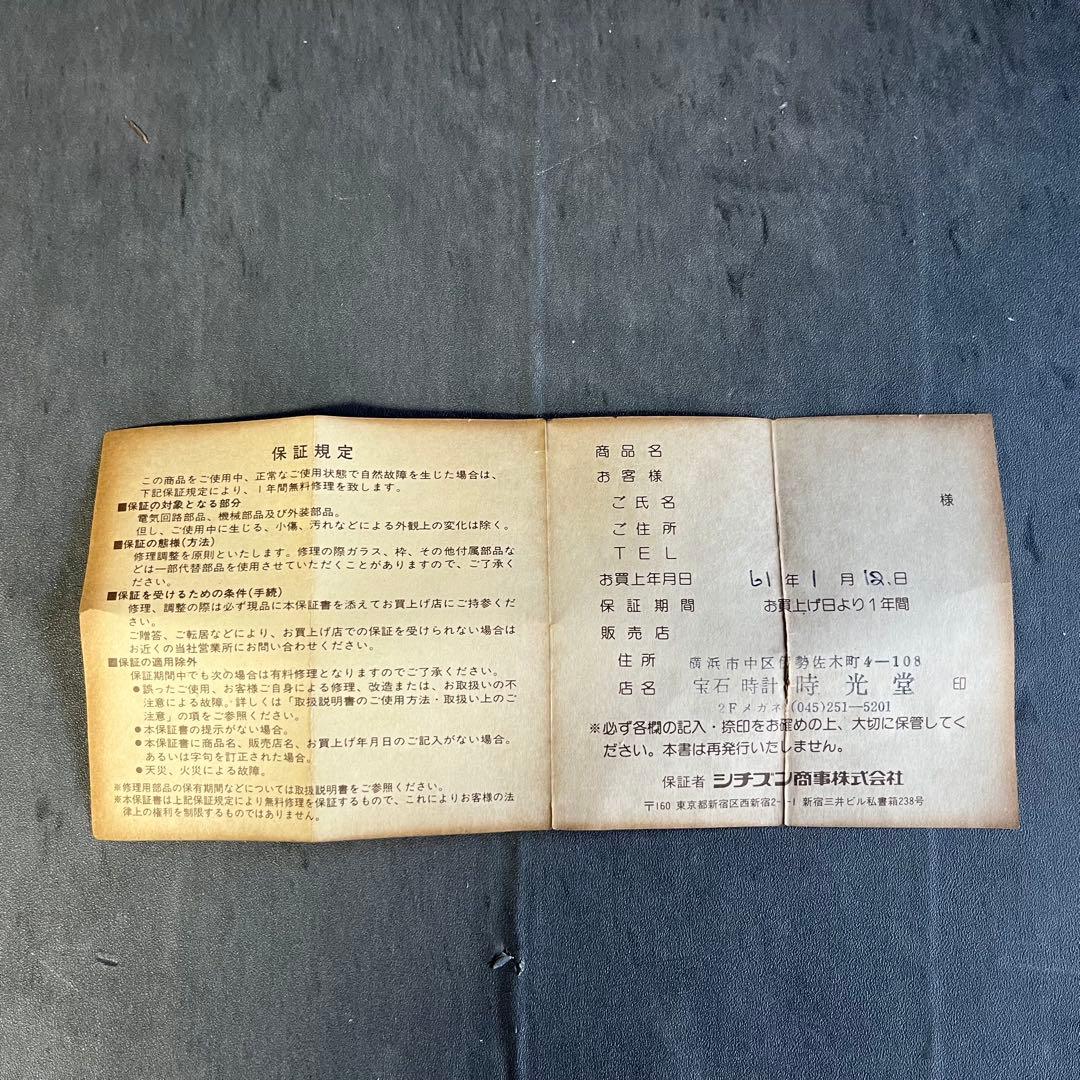 保証規定
この商品をご使用中、正常なご使用状態で自然故障を生じた場合は、
下記保証規定により、1年間無料修理を致します。
■保証の対象となる部分
電気回路部品、機械部品及び外装部品。
但し、ご使用中に生じる、小傷、汚れなどによる外観上の変化は除く。
■保証の態様(方法)
修理調整を原則といたします。修理の際ガラス、枠、その他付属部品な
どは一部代替部品を使用させていただくことがありますので、ご了承く
ださい。
■保証を受けるための条件(手続)
修理、調整の際は必ず現品に本保証書を添えてお買上げ店にご持参くだ
さい。
ご贈答、ご転居などにより、お買上げ店での保証を受けられない場合は
お近くの当社営業所にお問い合わせください。
■保証の適用除外
保証期間中でも次の場合は有料修理となりますのでご了承ください。
●誤ったご使用、お客様ご自身による修理、改造または、お取扱いの不
注意による故障。詳しくは「取扱説明書のご使用方法・取扱い上のご
注意」の項をご参照ください。
●本保証書の提示がない場合。
●本保証書に商品名、販売店名、お買上げ年月日のご記入がない場合。
あるいは字句を訂正された場合。
●天災、火災による故障。
※修理用部品の保有期間などについては取扱説明書をご参照ください。
※本保証書は上記保証規定により無料修理を保証するもので、これによりお客様の法
律上の権利を制限するものではありません。
商品名
お客様
ご氏名 様
ご住所
TEL
お買上年月日 61年1月12.日
保証期間 お買上げ日より1年間
販売店
住所 横浜市中区伊勢佐木町4―108
店名 宝石 時計 時光堂 印
2Fメガネ (045)251―5201
※必ず各欄の記入・捺印をお確めの上、大切に保管してく
ださい。本書は再発行いたしません。
保証者 シチズン商事株式会社
〒160 東京都新宿区西新宿2-1-1 新宿三井ビル私書箱238号